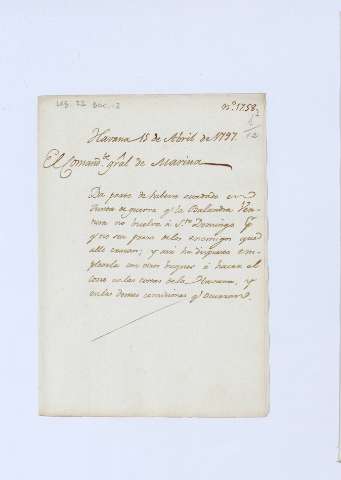 LEG. 22 DOC. 2
Nº 1758
2
12
Havana 15 de Abril de 1797.
El Comandte gral de Marina
Da parte de haberse acordado en
Junta de guerra q.e la Balandra Ven-
tura no buelva á Sto Domingo pr
q.e no sea presa de los enemigos que
alli cruzan; y así ha dispuesto em-
plearla con otros buques á hacer el
corso en las costas de la Havana, y
en las demas comisiones q.e ocurran.